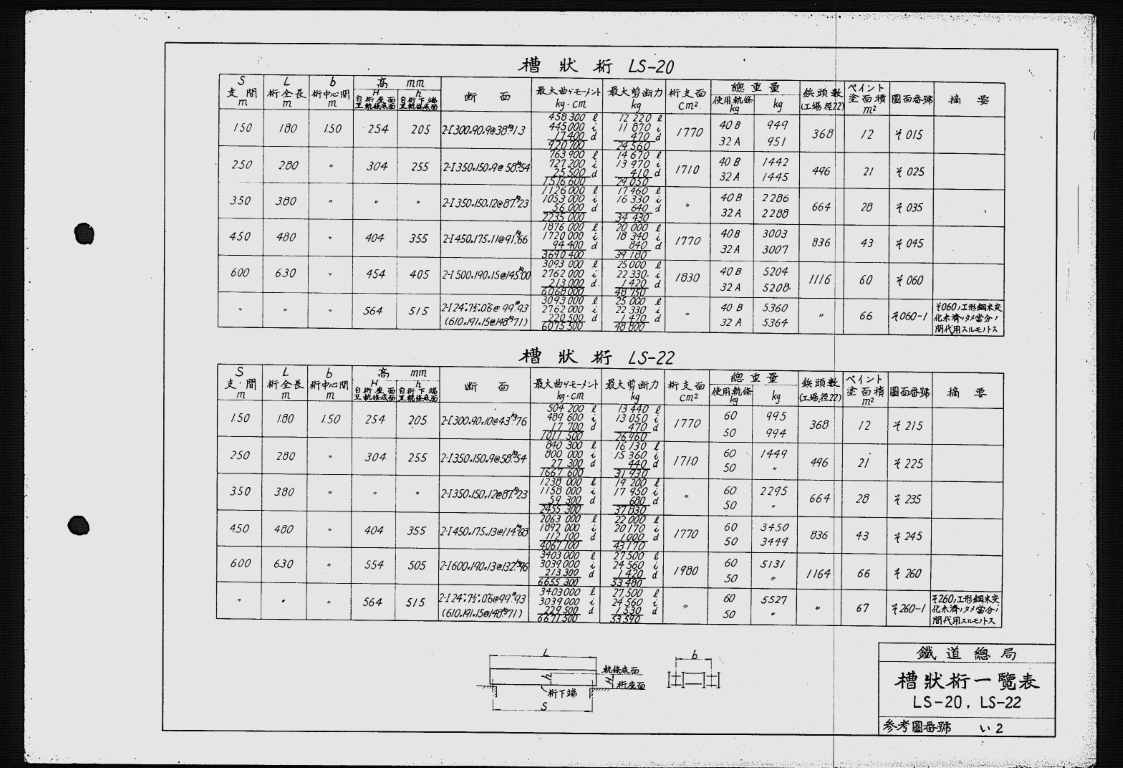 槽狀桁 LS-20
S 支間 m　L 桁全長 m　b 桁中心間 m　高 mm　H 自桁座面至軌條底面　h 自桁下端至軌條底面　断面　最大曲ゲモーメント kg·cm　最大剪断力 kg　桁支面 cm²　總重量　使用軌條 kg　kg　鋲頭数 (工場,径22)　ペイント塗面積 m²　圖面番號　摘要
1.50　1.80　1.50　254　205　2-I300.90.9@38㎏13　458300 l　445000 i　17400 d　920700　12220 l　11870 i　470 d　24560　1770　40B 949　32A 951　368　12　そ015
2.50　2.80　〃　304　255　2-I350.150.9@58㎏54　763900 l　727200 i　25500 d　1516600　14670 l　13970 i　410 d　29050　1710　40B 1442　32A 1445　496　21　そ025
3.50　3.80　〃　〃　〃　2-I350.150.12@87㎏23　1126000 l　1053000 i　56000 d　2235000　17460 l　16330 i　640 d　34430　〃　40B 2286　32A 2288　664　28　そ035
4.50　4.80　〃　404　355　2-I450.175.11@91㎏66　1876000 l　1720000 i　94400 d　3690400　20000 l　18340 i　840 d　39180　1770　40B 3003　32A 3007　836　43　そ045
6.00　6.30　〃　454　405　2-I500.190.15@145㎏00　3093000 l　2762000 i　213000 d　6068000　25000 l　22330 i　1420 d　48750　1830　40B 5204　32A 5208　1116　60　そ060
〃　〃　〃　564　515　2-I24″.7½″.06@99㎏93 (610.191.15@148㎏71)　3093000 l　2762000 i　220500 d　6075500　25000 l　22330 i　1470 d　48800　40B 5360　32A 5364　〃　66　そ060-1　そ060,工形鋼未交化未濟ノタメ當分ノ間代用スルモノトス
槽狀桁 LS-22
S 支間 m　L 桁全長 m　b 桁中心間 m　高 mm　H 自桁座面至軌條底面　h 自桁下端至軌條底面　断面　最大曲ゲモーメント kg·cm　最大剪断力 kg　桁支面 cm²　總重量　使用軌條 kg　kg　鋲頭数 (工場,径22)　ペイント塗面積 m²　圖面番號　摘要
1.50　1.80　1.50　254　205　2-I300.90.10@43㎏76　504200 l　489600 i　17700 d　1011500　13440 l　13050 i　470 d　26960　1770　60 995　50 994　368　12　そ215
2.50　2.80　〃　304　255　2-I350.150.9@58㎏54　840300 l　800000 i　27300 d　1667600　16130 l　15360 i　440 d　31930　1710　60 1449　50 〃　496　21　そ225
3.50　3.80　〃　〃　〃　2-I350.150.12@87㎏23　1238000 l　1158000 i　59300 d　2455300　19200 l　17950 i　680 d　37830　〃　60 2295　50 〃　664　28　そ235
4.50　4.80　〃　404　355　2-I450.175.13@114㎏68　2063000 l　1892000 i　112100 d　4067100　22000 l　20170 i　1000 d　43170　1770　60 3450　50 3449　836　43　そ245
6.00　6.30　〃　554　505　2-I600.190.13@132㎏96　3403000 l　3039000 i　213300 d　6655300　27500 l　24560 i　1420 d　53480　1980　60 5131　50 〃　1164　66　そ260
〃　〃　〃　564　515　2-I24″.7½″.06@99㎏93 (610.191.15@148㎏71)　3403000 l　3039000 i　229500 d　6671500　27500 l　24560 i　1530 d　53590　〃　60 5527　50 〃　〃　67　そ260-1　そ260,工形鋼未交化未濟ノタメ當分ノ間代用スルモノトス
L　軌條底面　h　H　桁座面　桁下端　S
b
鐵道總局
槽狀桁一覽表
LS-20, LS-22
参考圖番號　い2